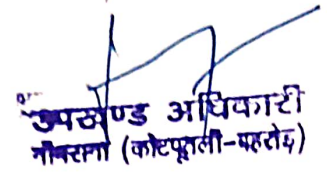 उपखण्ड अधिकारी
नीमराना (कोटपूतली-बहरोड़)